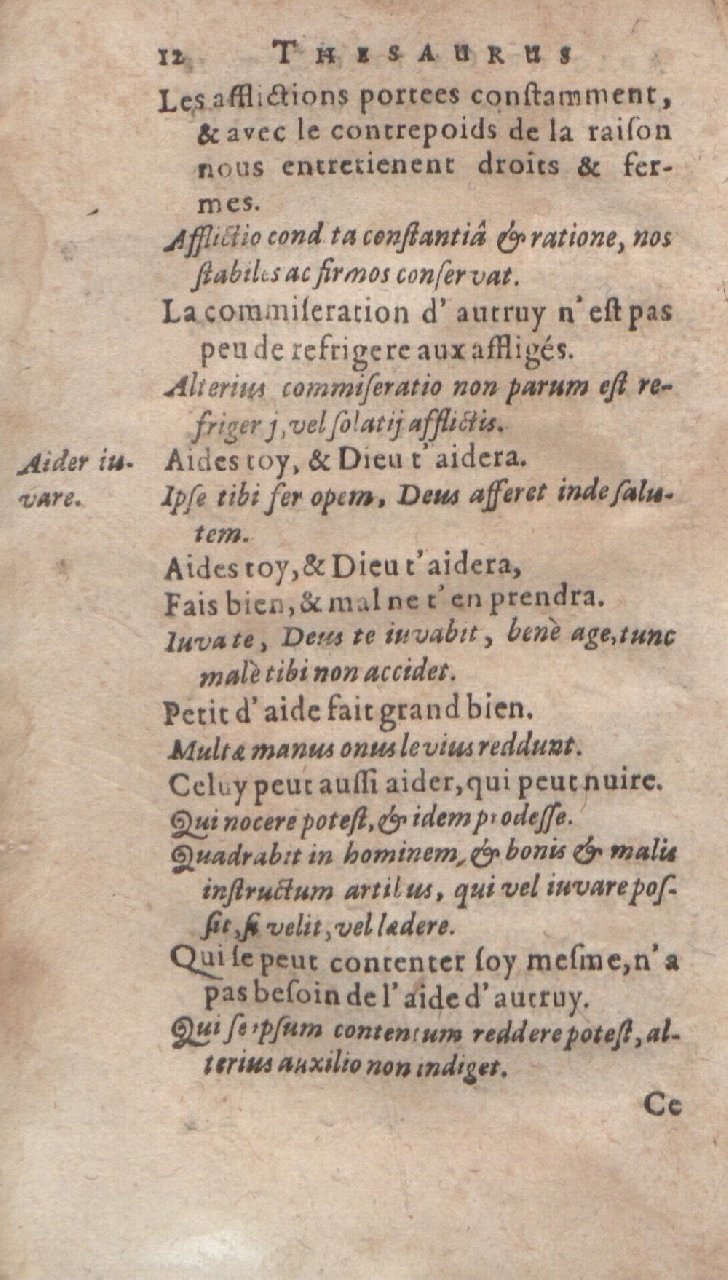 12 THESAURUS
Les afflictions portees conſtamment,
& avec le contrepoids de la raiſon
nous entretienent droits & fer-
mes.
Afflictio cond ta conſtantiâ & ratione, nos
ſtabiles ac firmos conſervat.
La commiſeration d' autruy n'eſt pas
peu de refrigere aux affligés.
Alterius commiſeratio non parum eſt re-
friger j, vel ſolatij afflictis.
Aider iu-
vare.
Aides toy, & Dieu t'aidera.
Ipſe tibi fer opem, Deus afferet inde ſalu-
tem.
Aides toy, & Dieu t'aidera,
Fais bien, & mal ne t'en prendra.
Iuva te, Deus te iuvabit, benè age, tunc
malè tibi non accidet.
Petit d'aide fait grand bien.
Multæ manus onus levius reddunt.
Celuy peut auſſi aider, qui peut nuire.
Qui nocere poteſt, & idem prodeſſe.
Quadrabit in hominem, & bonis & malis
inſtructum artibus, qui vel iuvare poſ-
ſit, ſi velit, vel lædere.
Qui ſe peut contenter ſoy meſme, n'a
pas beſoin de l'aide d'autruy.
Qui ſeipſum contentum reddere poteſt, al-
terius auxilio non indiget.
Ce